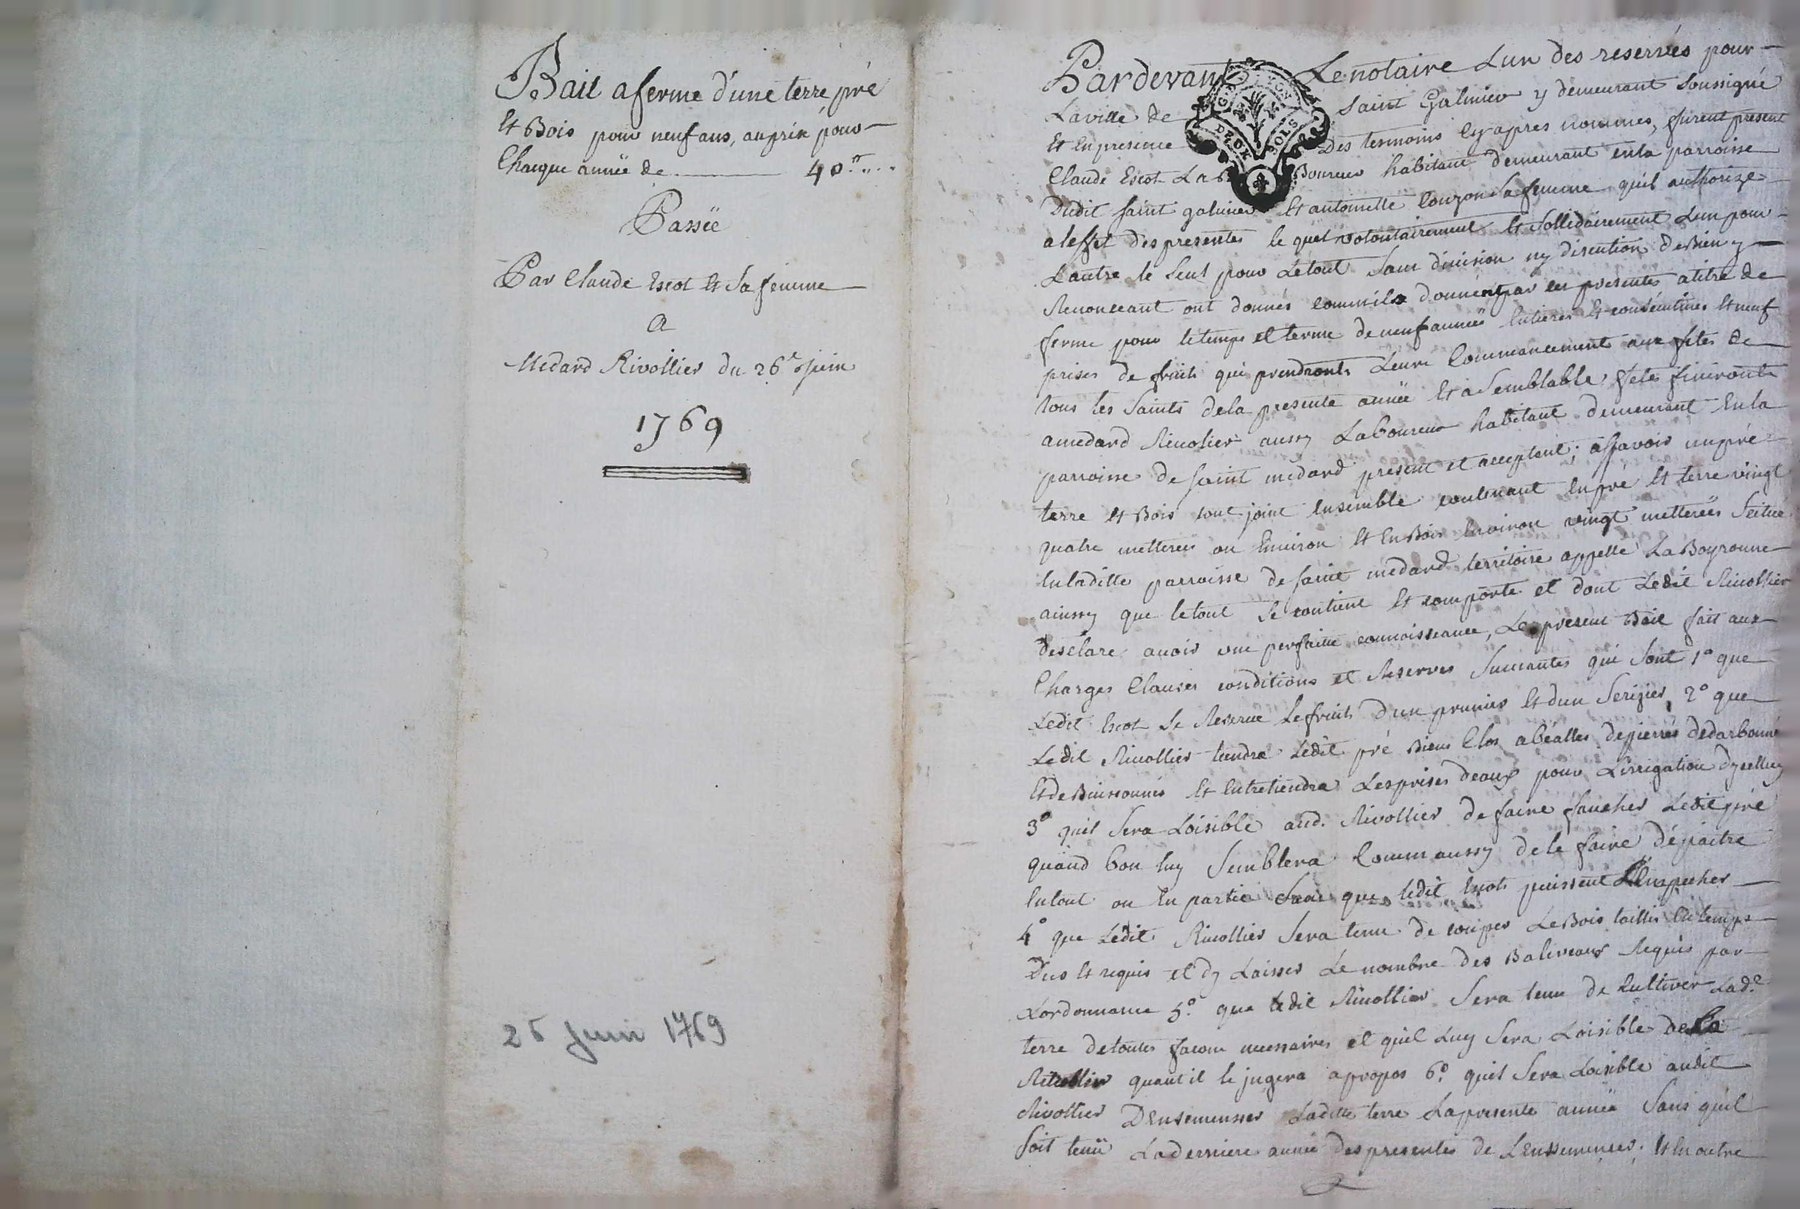 Bail a ferme d'une terre pré
Et Bois pour neuf ans, au prix pour
Chacque année de 40ᵗᵗ
Passée
Par Claude Escot Et Sa femme
A
Medard Rivollier du 26ᵉ Juin
1769
26 Juin 1769
Pardevant Le notaire Lun des reservés pour
La ville de Saint Galmier y demeurant Soussigné
Et En presence Des temoins Cy apres nommés, furent present
Claude Escot La Boureur habitant demeurant en la parroisse
Dudit saint galmier Et antoinette Sa femme quil authorize
a leffet des presentes le quel volontairement Et Sollidairement Lun pour
Lautre le Seul pour Le tout Sans division ny discution de Bien y
Renonceant ont donnés comm ils donnent par les presentes a titre de
ferme pour le temps et terme de neuf années Entieres Et consécutives Et neuf
prises de fruits qui prendronts Leurs Commancement aux fetes de
tous les Saints de la presente année Et a Semblable fete finironts
a medard Rivolier aussy Laboureur habitant demeurant En la
parroisse de saint medard present et acceptant; assavoir un pré
terre Et Bois tout joint Ensemble contenant En pré Et terre vingt
quatre metterées ou Environ Et En Bois Environ vingt metterées Scitué
En laditte parroisse de saint medard territoire appellé La Boyronne
ainssy que le tout Se contient Et comporte et dont Ledit Rivollier
desclare avoir une perfaitte connoisseance, Le present Bail fait aux
Charges Clauses conditions et Reserves Suivantes qui Sont 1º que
Ledit Escot Se Reserve Le fruit d'un prunier Et d'un Serizier, 2º que
Ledit Rivollier tiendra Ledit pré Bien Clos de pierres
Et de Buissonnés Et Entretiendra Les prises deaux pour Lirrigation dycelluy
3º quil Sera Loisible aud. Rivollier de faire faucher Ledit pré
quand bon luy Semblera Comm aussy de le faire dépaitre
En tout ou En partie Sans que ledit Escot puissent L'Enpecher
4º que Ledit Rivollier Sera tenu de couper Le Bois taillis En temps
Dus Et requis et dy Laisser Le nombre des Baliveaux Requis par
Lordonnance 5º que Ledit Rivollier Sera tenu de Cultiver Lad.ᵉ
terre de toutes facons necessaires et quil Luy Sera Loisible de La
quant il le jugera apropos 6º quil Sera Loisible audit
Rivollier DEnsemensser Laditte terre La presente année Sans quil
Soit tenü La derniere année des presentes de LEnssemenser, Et En outre